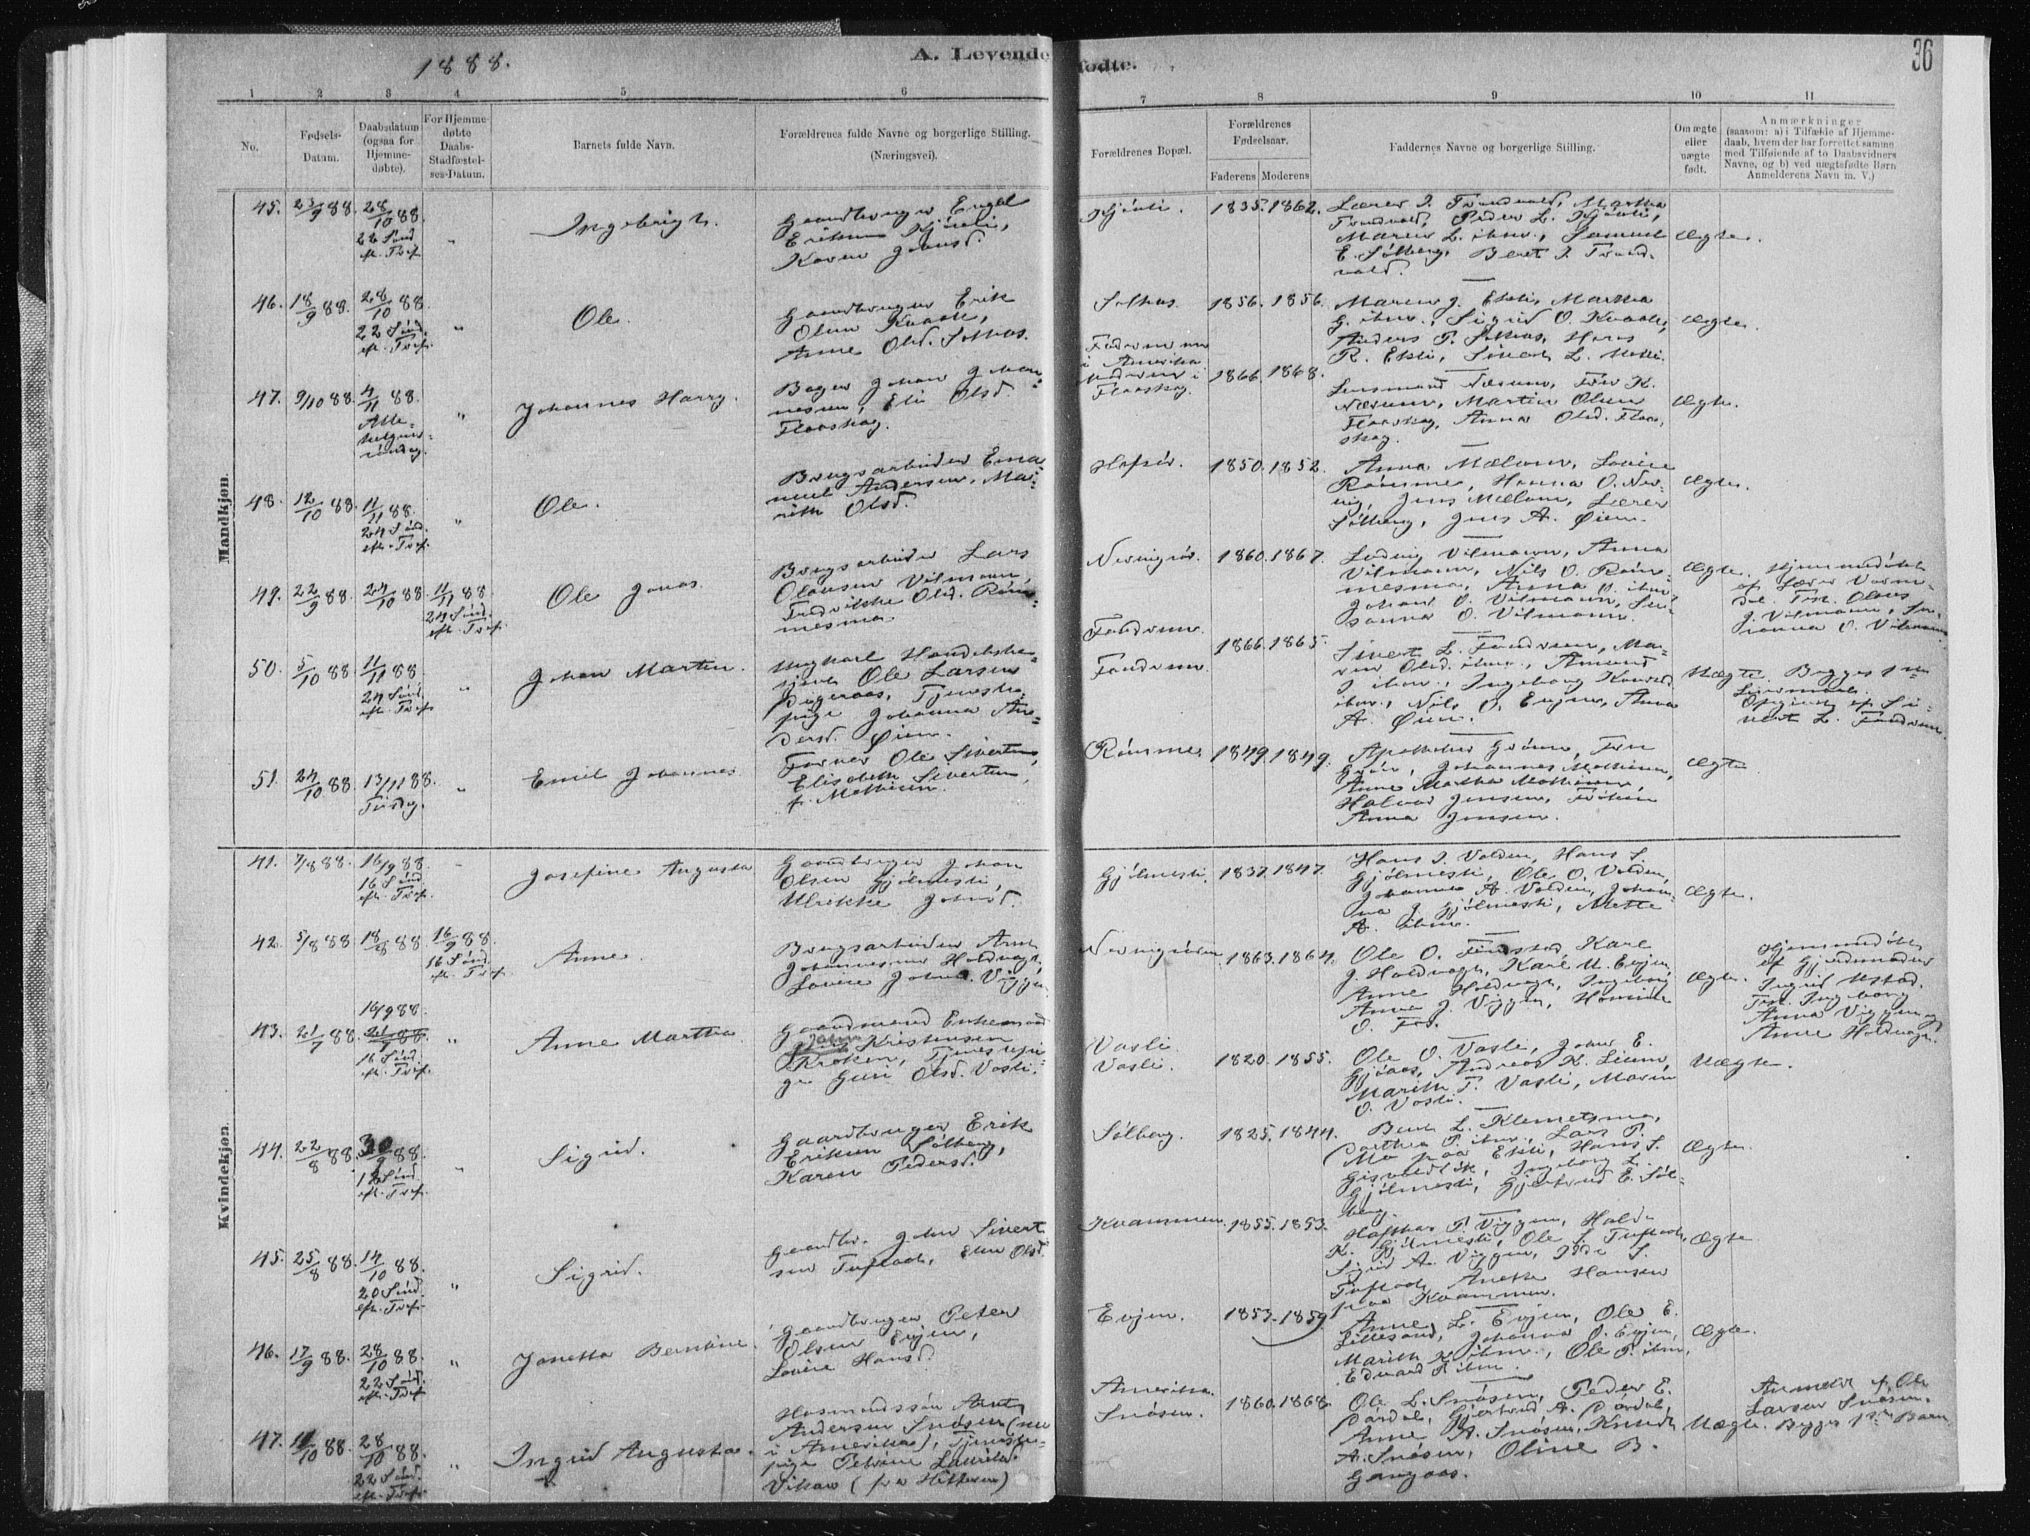 1888.
A. Levende
fødte.
36
1 2 3 4 5 6 7 8 9 10 11
No.
Fødsels-
Datum.
Daabsdatum
(ogsaa for
Hjemme-
døbte).
For Hjemme-
døbte
Daabs-
Stadfæstel-
ses-Datum.
Barnets fulde Navn.
Forældrenes fulde Navne og borgerlige Stilling.
(Næringsvei).
Forældrenes Bopæl.
Forældrenes
Fødselsaar.
Faderens Moderens
Faddernes Navne og borgerlige Stilling.
Om ægte
eller
uægte
født.
Anmærkninger
(saasom: a) i Tilfælde af Hjemme-
daab, hvem der har forrettet samme
med Tilføiende af to Daabsvidners
Navne, og b) ved uægtefødte Børn
Anmelderens Navn m. V.)
Mandkjøn.
45. 23/9 88. 28/10 88.
22 Sønd.
eft. Tref.
"
Ingebrigt.
Gaardbruger Engel
Eriksen
Karen Johnsd.
1835. 1862.
Lærer J. Trondvold, Martha
Trondvold, Peder L.
Maren L. ibm., Samuel
E. Sølberg, Beret J. Trond-
vold.
Ægte.
46. 18/9 88. 28/10 88.
22 Sønd.
eft. Tref.
"
Ole.
Gaardbruger Erik
Olsen
Anne Olsd. Solhus.
Solhus.
1856. 1856.
Maren J. Ekli, Martha
G. ibm., Sigrid O.
Anders P. Solhus, Hans
R. Ekli, Sivert L.
Ægte.
47. 9/10 88. 4/11 88.
Alle-
helgens-
søndag.
"
Johannes Harry.
Bager Johan Johan-
nesen, Eli Olsd.
Floaskog.
Faderen nu
i Amerika
Moderen i
Floaskog.
1866. 1868.
Lensmand Næsum, Fru K.
Næsum, Martin Olsen
Floaskog, Anna Olsd. Floa-
skog.
Ægte.
48. 12/10 88. 11/11 88.
24 Sønd.
eft. Tref.
"
Ole.
Brugsarbeider Ema-
nuel Andersen, Ma-
rith Olsd.
1850. 1852.
Anna Mælum, Lovise
Rømme, Hanna O. Ner-
vig, Jens Mælum, Lærer
Solberg, Jens A. Øien.
Ægte.
49. 22/9 88. 24/10 88. 11/11 88.
24 Sønd.
eft. Tref.
Ole Jonas.
Brugsarbeider Lars
Olausen Vilmann,
Fredrikke Olsd. Røm-
mesmo.
1860. 1867.
Ludvig Vilmann, Anna
Vilmann, Nils O. Røm-
mesmo, Anna O. ibm.
Johan O. Vilmann, Su-
sanna O. Vilmann.
Ægte.
Hjemmedøbt
af Lærer Vorm-
dal. Test. Olaus
J. Vilmann, Su-
sanna O. Vilmann
50. 5/10 88. 11/11 88.
24 Sønd.
eft. Tref.
"
Johan Martin.
Ungkarl Handelsbe-
tjent Ole Larsen
Digeraas, Tjeneste-
pige Johanna An-
dersd. Øien.
1866. 1865.
Sivert L.
ren Olsd. ibm., Amund
J. ibm., Ingeborg
ibm., Nils O. Evjen, Anna
A. Øien.
Uægte.
Begges 1ste
Leiermaal.
Opgivet af Si-
vert L.
51. 24/10 88. 13/11 88.
Tirsdag.
"
Emil Johannes.
Farver Ole Sivertsen,
Elisabeth Sivertsen,
f. Mathisen.
Rømme.
1849. 1849.
Apotheker Grønn, Fru
Grøn, Johannes Mathisen,
Anne Martha Mathisen,
Halvor Jensen, Frøken
Anna Jensen.
Ægte
Kvindekjøn.
41. 7/8 88. 16/9 88.
16 Sønd.
eft. Tref.
-
Josefine Augusta
Gaardbruger Johan
Olsen Gjølmesli,
Ulrikke Johnsd.
Gjølmesli.
1837. 1847.
Hans J. Volden, Hans S.
Gjølmesli, Ole O. Volden,
Johanna A. Volden, Johan-
na J. Gjølmesli, Mette
A. ibm.
Ægte.
42. 5/8 88. 18/8 88. 16/9 88.
16 Sønd.
eft. Tref.
Anne.
Brugsarbeider Arnt
Johannesen Holdvagt,
Lovise Johnsd. Viggen.
1863. 1864.
Ole O. Fendstad, Karl
J. Holdvagt, Karl U. Evjen,
Anne Holdvagt, Ingeborg
Anna J. Viggen,
O. Fos.
Ægte.
Hjemmedøbt
af Gjordmoder
Ingrid Ustad.
Test. Ingeborg
Anna Viggen og
Anne Holdvagt.
16/9 88.
43. 21/7 88.
16 Sønd.
eft. Tref.
"
Anne Martha
Gaardmand Enkemand
Kristensen
Kroken, Tjenestepi-
ge Guri Olsd. Vasli.
Vasli.
Vasli.
1820. 1855.
Ole O. Vasli, John E.
Gjøaas, Andreas K.
Marith T. Vasli, Maren
O. Vasli.
Uægte.
44. 22/8 88. 30/9 88.
18 Sønd.
eft. Tref.
"
Sigrid.
Gaardbruger Erik
Eriksen Sølberg,
Karen Pedersd.
Sølberg.
1825. 1844.
Berit L. Klemetsmo,
Dorthea P. ibm., Lars P.
Mo paa Ekli, Hans S.
Ingeborg L.
Gjølmesli, Gjertrud E. Søl-
berg.
Ægte.
45. 25/8 88. 14/10 88.
20 Sønd.
eft. Tref.
"
Sigrid.
Gaardbr. John Sivert-
sen Tuflaat, Elen Olsd.
Kvammen.
1855. 1853.
P. Viggen, Halde
K. Gjølmesli, Ole S. Tuflaat,
Sigrid A. Viggen, S.
Tuflaat, Anethe Hansen
paa Kvammen.
Ægte
46. 17/9 88. 28/10 88.
22 Sønd.
eft. Tref.
"
Janetta Bentine.
Gaardbruger Peter
Olsen Evjen,
Lovise Hansd.
Evjen.
1853. 1859.
Anne L. Evjen, Ole E.
Lillesand, Johanna O. Evjen,
Marith K. ibm., Ole P. ibm.,
Edvard P. ibm.
Ægte.
47. 11/10 88. 28/10 88.
22 Sønd.
eft. Tref.
"
Ingrid Augusta.
Husmandssøn Arnt
Andersen Snøsen (nu
i Amerika), Tjeneste-
pige Petrine Lauritsd.
Vikan (fra Hitteren)
Amerika.
Snøsen.
1860. 1868.
Ole L. Snøsen, Peder E.
Dørdal, Gjertrud A. Dørdal,
Anne A. Snøsen, Knud
A. Snøsen, Oline B.
Gangaas.
Uægte.
Anmeldt af Ole
Larsen Snøsen.
Begges 1ste Barn